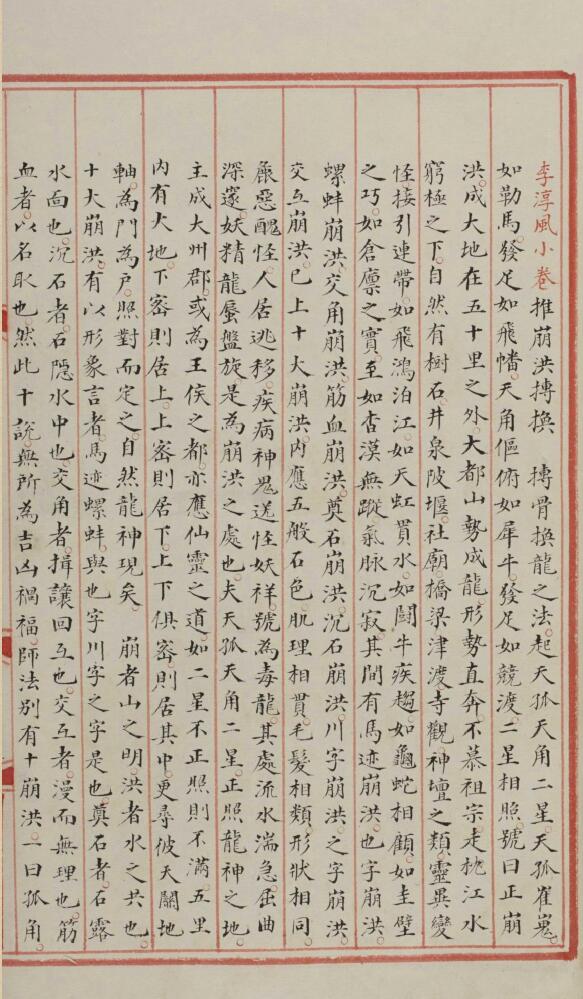 李淳風小卷　推崩洪摶換　摶骨換龍之法。起天孤天角二星。天孤崔嵬。
如勒馬。發足如飛幡。天角傴俯如犀牛。發足如競渡。二星相照。號曰正崩
洪。成大地在五十里之外。大都山勢成龍。形勢直奔。不慕祖宗。走枕江水
窮極之下。自然有樹石井泉陂堰。社廟橋梁津渡寺觀。神壇之類。靈異變
怪。接引連帶。如飛鴻泊江。如天虹貫水。如鬪牛疾趨。如龜蛇相顧。如圭璧
之巧。如倉廪之實。至如杳漠無蹤。氣脉沉寂。其間有馬迹崩洪。也字崩洪。
螺蚌崩洪。交角崩洪。筋血崩洪。奠石崩洪。沉石崩洪。川字崩洪。之字崩洪。
交互崩洪。已上十大崩洪。内應五般石色。肌理相貫。毛髮相類。形狀相同。
麄惡醜怪。人居逃移。疾病神鬼。送怪妖祥。號為毒龍。其處流水湍急。屈曲
深邃。妖精龍蜃盤旋。是為崩洪之處也。夫天孤天角二星。正照龍神之地。
主成大州郡。或為王侯之都。亦應仙靈之道。如二星不正照則不滿。五里
内有大地。下密則居上。上密則居下。上下俱密。則居其中。更尋彼天關地
軸。為門為戶。照對而定之。自然龍神現矣。　崩者山之明。洪者水之共也。
十大崩洪。有以形象言者。馬迹螺蚌。與也字川字之字是也。奠石者。石露
水面也。沉石者。石隱水中也。交角者。揖讓回互也。交互者。漫而無理也。筋
血者。以名取也。然此十說。無所為吉凶禍福。師法別有十崩洪。一曰孤角。